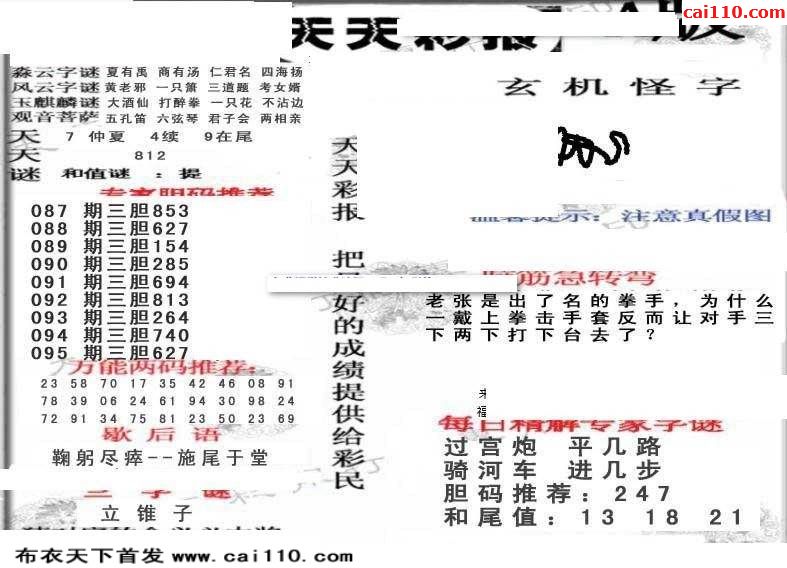 cai110.com
天天彩报 版
淼云字谜 夏有禹 商有汤 仁君名 四海扬
风云字谜 黄老邪 一只箫 三道题 考女婿
玉麒麟谜 大酒仙 打醉拳 一只花 不沾边
观音菩萨 五孔笛 六弦琴 君子会 两相亲
天 7 仲夏 4续 9在尾
天 812
谜 和值谜 : 提
专家胆码推荐
087 期三胆853
088 期三胆627
089 期三胆154
090 期三胆285
091 期三胆694
092 期三胆813
093 期三胆264
094 期三胆740
095 期三胆627
万能两码推荐:
23 58 70 17 35 42 46 08 91
78 39 06 24 61 94 30 98 24
72 91 34 75 81 23 50 23 69
歇后语
鞠躬尽瘁--施尾于堂
三字谜
立锥子
天天彩报 把最好的成绩提供给彩民
玄机怪字
温馨提示: 注意真假图
脑筋急转弯
老张是出了名的拳手,为什么
一戴上拳击手套反而让对手三
下两下打下台去了?
每日精解专家字谜
过宫炮 平几路
骑河车 进几步
胆码推荐: 247
和尾值: 13 18 21
布衣天下首发 www.cai110.com